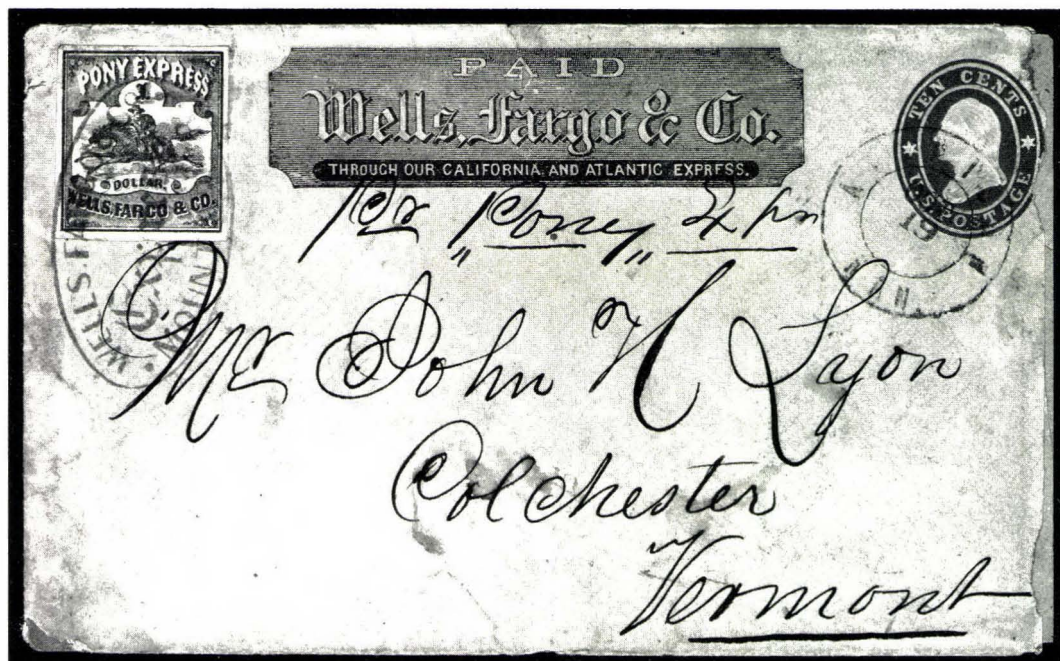 PONY EXPRESS
1
DOLLAR.
WELLS, FARGO & CO.
PAID
Wells, Fargo & Co.
THROUGH OUR CALIFORNIA AND ATLANTIC EXPRESS.
TEN CENTS
U.S. POSTAGE
19
WELLS. FA
Pr "Poney" Exp
Mr John H Lyon
Colchester
Vermont